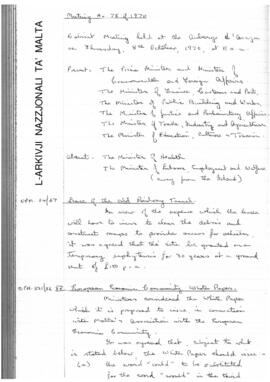 Meeting No 78 of 1970
Cabinet Meeting held at the Auberge d'Aragon
on Thursday, 8th October, 1970, at 10 a.m.
Present: The Prime Minister and Minister of
Commonwealth and Foreign Affairs
The Minister of Finance, Customs and Port
The Minister of Public Building and Works
The Minister of Justice and Parliamentary Affairs
The Minister of Trade, Industry and Agriculture
The Minister of Education, Culture & Tourism
Absent: The Minister of Health
The Minister of Labour, Employment and Welfare
(away from the Island)
L-ARKIVJI NAZZJONALI TA' MALTA
Lease of the Old Railway Tunnel
In view of the expense which the lessee
will have to incur to clear the debris and
construct ramps to provide access for vehicles
it was agreed that the site be granted on
temporary emphyteusis for 30 years at a ground
rent of £150 p.a.
European Economic Community White Paper
Ministers considered the White Paper
which it is proposed to issue in connection
with Malta's Association with the European
Economic Community.
It was agreed that, subject to what
is stated below, the White Paper should issue -
(a) the word "could" to be substituted
for the word "would" in the third